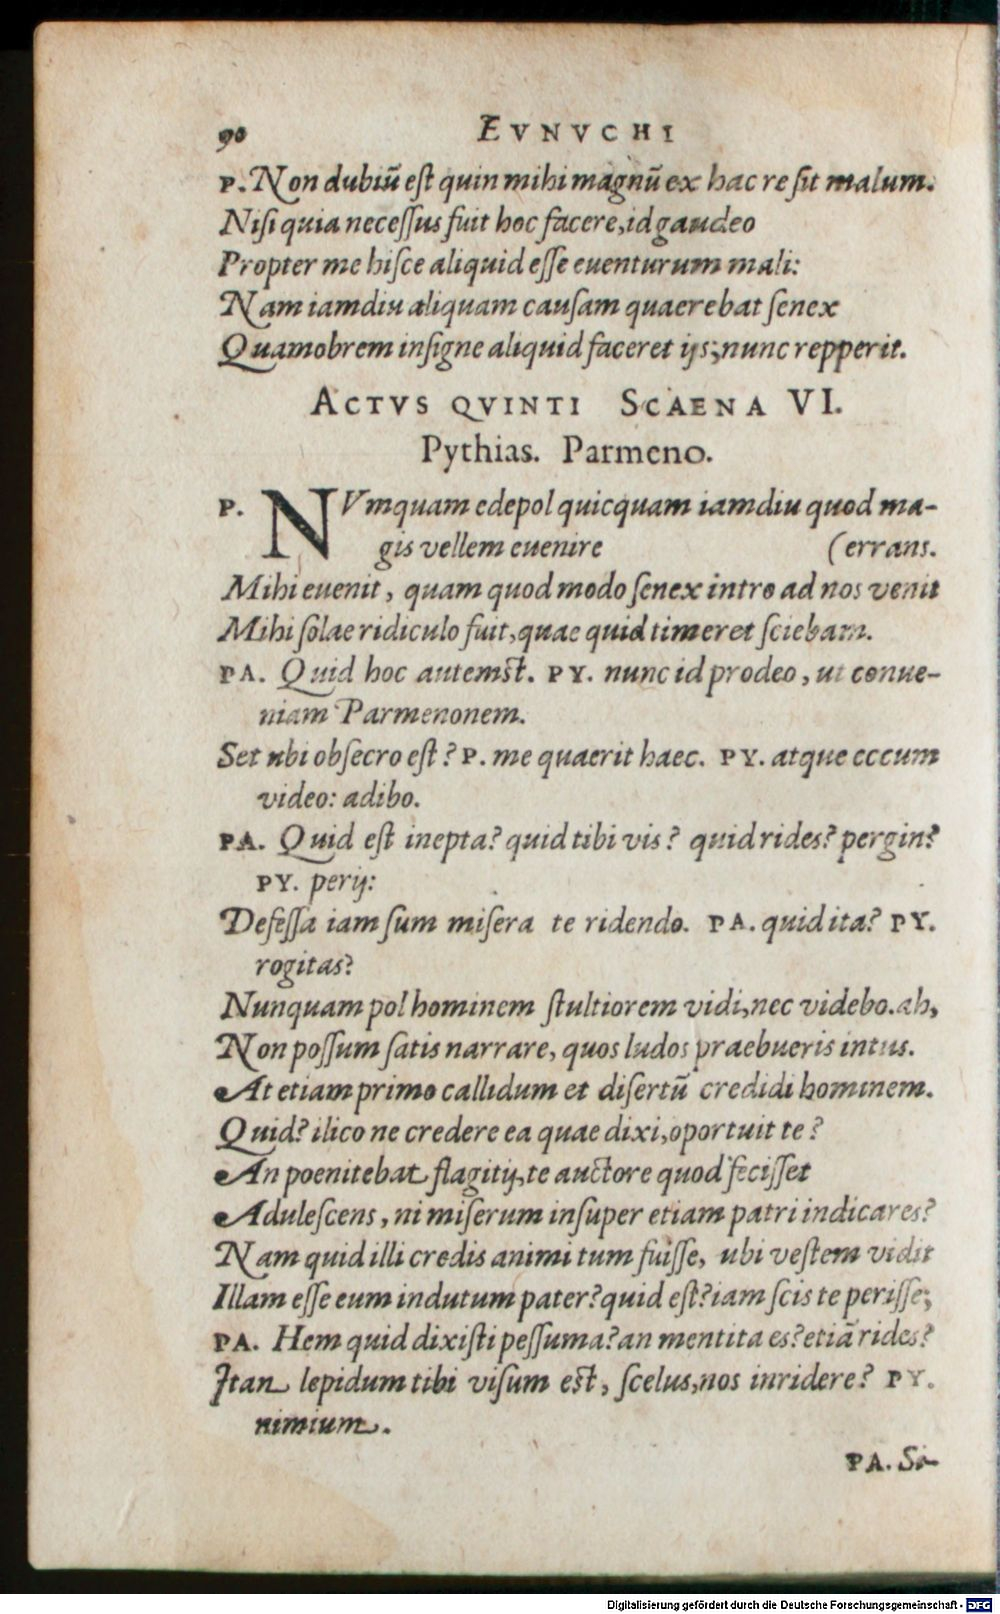 90 EVNVCHI
P. Non dubiū est quin mihi magnū ex hac re sit malum.
Nisi quia necessus fuit hoc facere, id gaudeo
Propter me hisce aliquid esse euenturum mali:
Nam iamdiu aliquam causam quaerebat senex
Quamobrem insigne aliquid faceret ijs; nunc repperit.
ACTVS QVINTI SCAENA VI.
Pythias. Parmeno.
P. NVmquam edepol quicquam iamdiu quod ma-
gis vellem euenire (errans.
Mihi euenit, quam quod modo senex intro ad nos venit
Mihi solae ridiculo fuit, quae quid timeret sciebam.
PA. Quid hoc autemst. PY. nunc id prodeo, ut conue-
niam Parmenonem.
Set ubi obsecro est? P. me quaerit haec. PY. atque eccum
video: adibo.
PA. Quid est inepta? quid tibi vis? quid rides? pergin?
PY. perij:
Defessa iam sum misera te ridendo. PA. quid ita? PY.
rogitas?
Nunquam pol hominem stultiorem vidi, nec videbo. ah,
Non possum satis narrare, quos ludos praebueris intus.
At etiam primo callidum et disertū credidi hominem.
Quid? ilico ne credere ea quae dixi, oportuit te?
An poenitebat flagitij, te auctore quod fecisset
Adulescens, ni miserum insuper etiam patri indicares?
Nam quid illi credis animi tum fuisse, ubi vestem vidit
Illam esse eum indutum pater? quid est? iam scis te perisse;
PA. Hem quid dixisti pessuma? an mentita es? etiā rides?
Itan lepidum tibi visum est, scelus, nos inridere? PY.
nimium.
PA. Si-
Digitalisierung gefördert durch die Deutsche Forschungsgemeinschaft - DFG